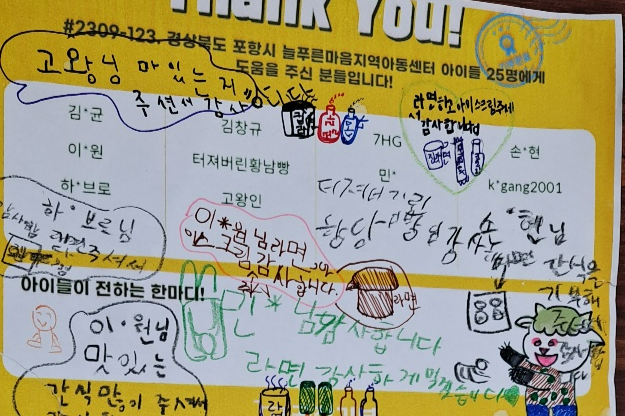 Thank You!
#2309-123. 경상북도 포항시 늘푸른마음지역아동센터 아이들 25명에게
도움을 주신 분들입니다!
고왕님 맛있는거
주셔서 감사합니다
라면하고 아이스크림주셔
서 감사합니다
김*균
김창규
7HG
손*현
이*원
터져버린황남빵
민*
k*gang2001
하*브로
고왕인
하*브로님
라면주셔서
이*원님라면
아이스크림
주셔서
감사합니다
황남빵님 감사
손*현님
간식을
라면
아이들이 전하는 한마디!
민*님 감사합니다
라면 감사하게 먹겠습니다
이*원님
맛있는
간식 많이 주셔서